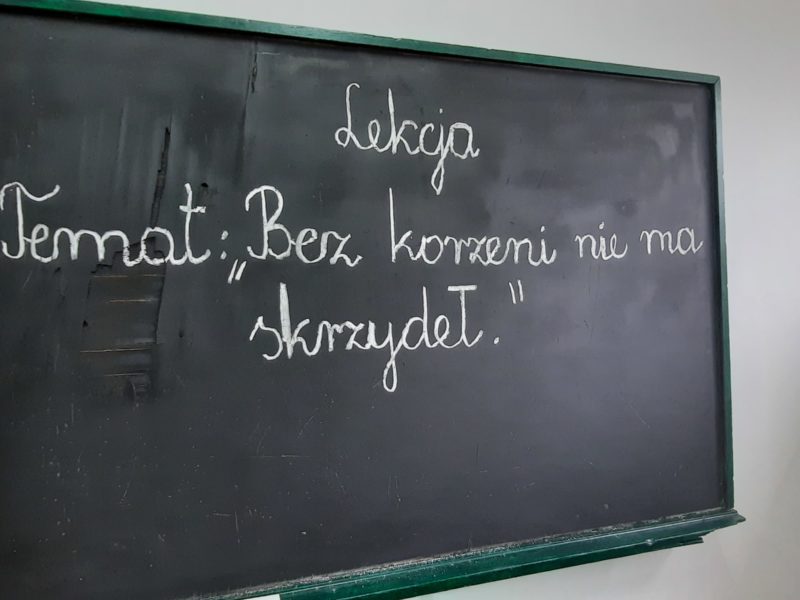 Lekcja
Temat: „Bez korzeni nie ma
skrzydeł."